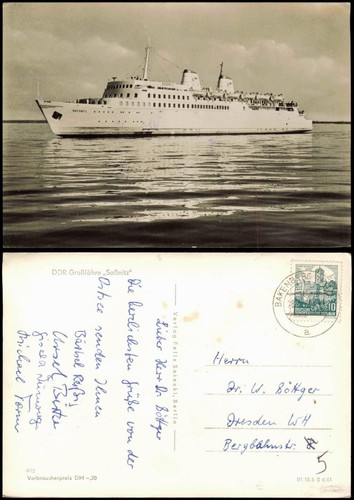 DDR Großfähre „Saßnitz"
Lieber Herr Dr. Böttger
Die herzlichsten Grüße von der
Ostsee senden Ihnen
Bärbel
Ursel Böttger
Michael
Verlag Felix Setecki, Berlin
Verbraucherpreis DM –,20
BAREN
a
10
Herrn
Dr. W. Böttger
Dresden WH
Bergbahnstr.
5